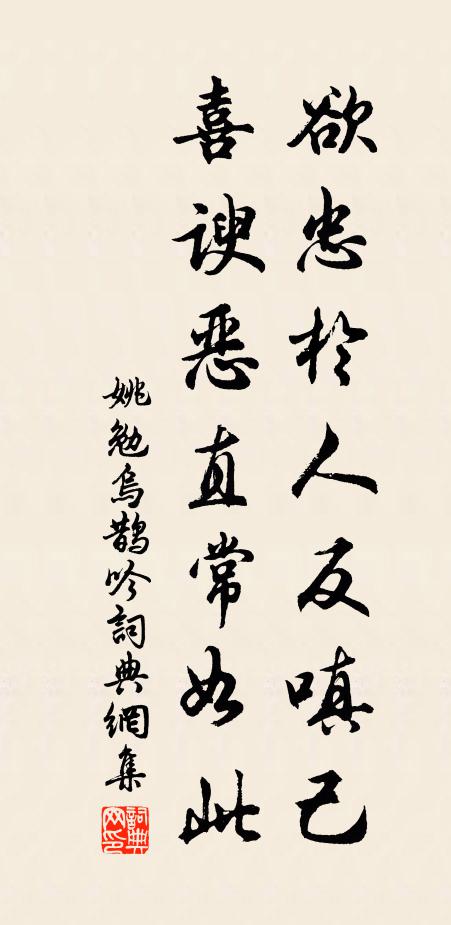 欲忠於人反嗔己
喜諛恶直常如此
姚勉烏鵲吟詞典網集
詞典網印